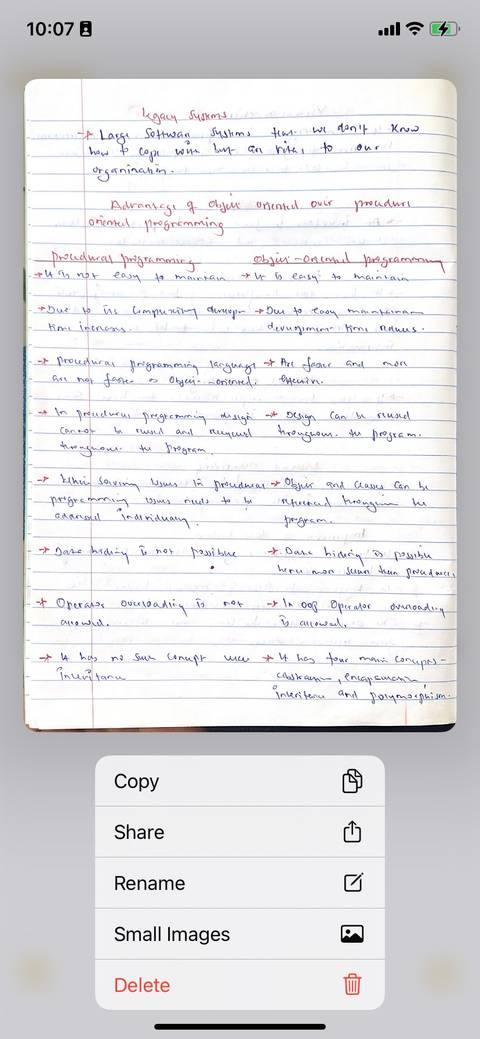 10:07
Legacy Systems
→ Large Software Systems that we don't know
how to cope with but are vital to our
organisation.
Advantage of object oriented over procedure
oriented programming
procedural programming
object-oriented programming
→ It is not easy to maintain
→ It is easy to maintain
→ Due to its complexity develop
→ Due to easy maintenance
time increases.
development time reduces.
→ procedural programming language
→ Are faster and more
are not faster as object-oriented.
effective.
→ In procedural programming design
→ Design can be reused
cannot be reused and recycled
throughout the program.
throughout the program.
→ When solving issues in procedural
→ Object and classes can be
programming issues needs to be
referenced throughout the
individually.
program.
→ Data hiding is not possible
→ Data hiding is possible
hence more secure than procedural.
→ Operator overloading is not
→ In oop operator overloading
allowed.
is allowed.
→ It has no such concept like
→ It has four main concepts-
inheritance
abstraction, encapsulation,
inheritance and polymorphism.
Copy
Share
Rename
Small Images
Delete